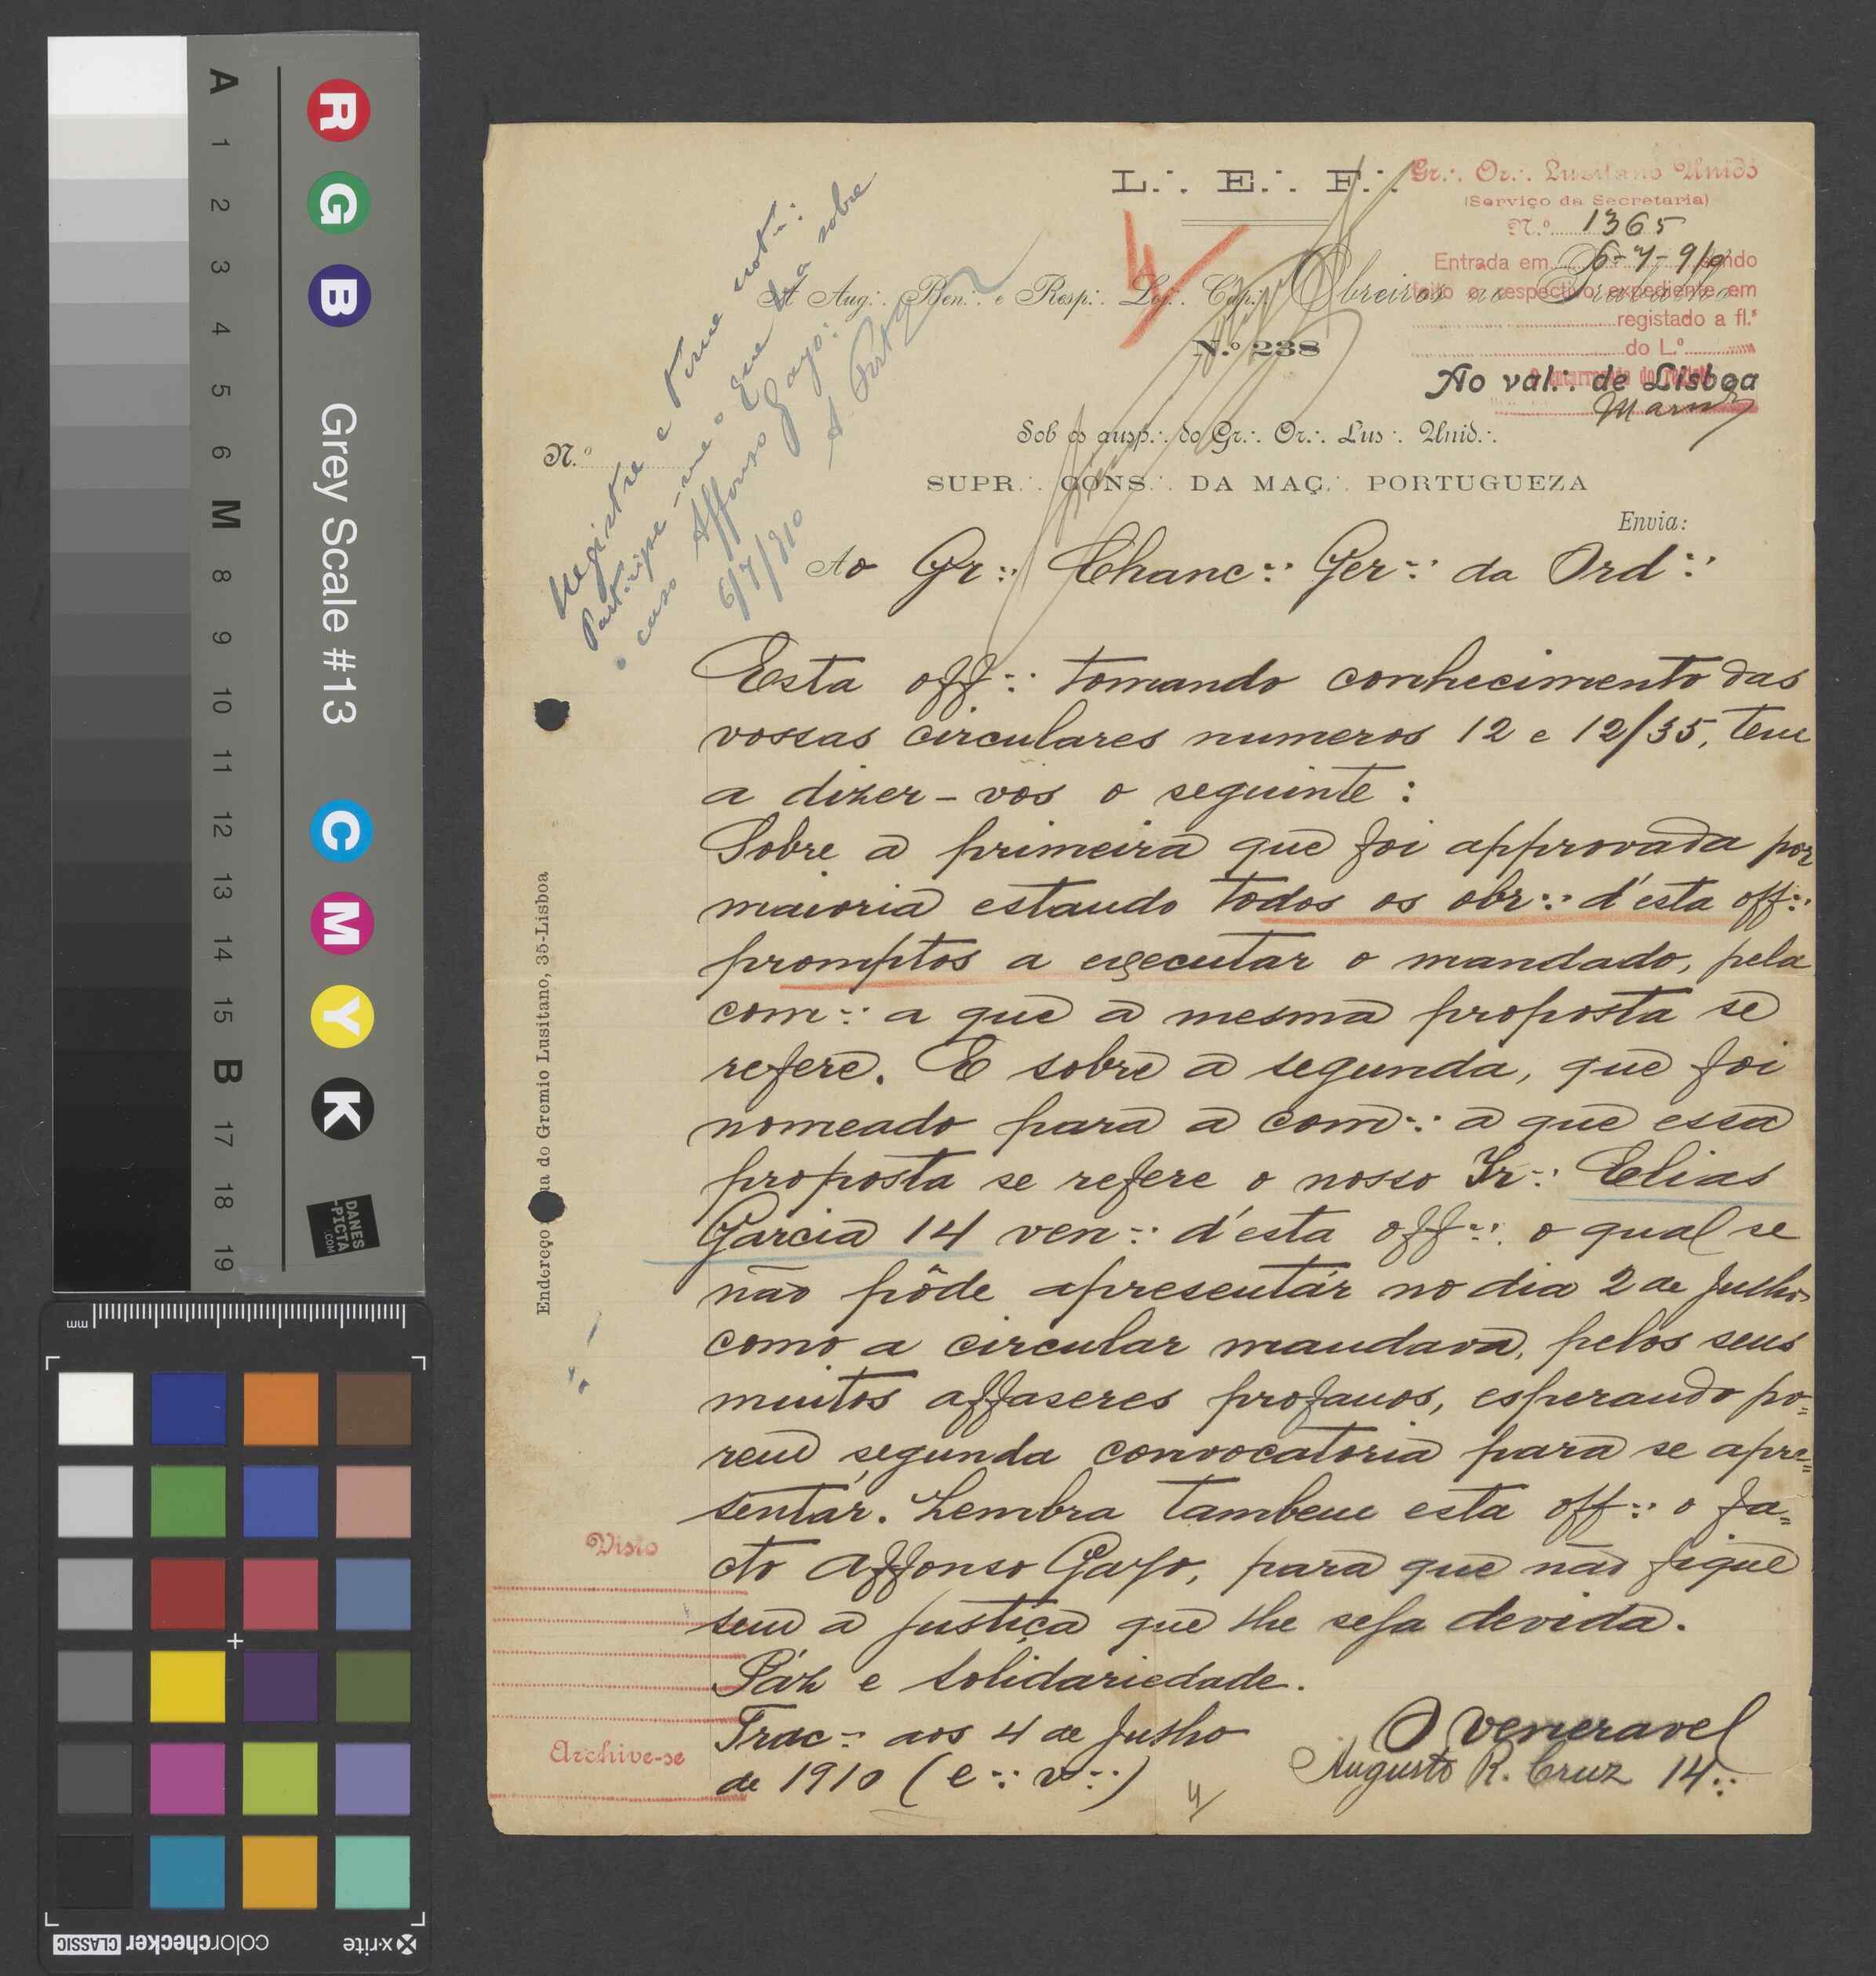 L∴ E∴ F∴
Gr∴ Or∴ Lusitano Unido
(Serviço da Secretaria)
N.º 1365
Entrada em 6-7-910 sendo
feito o respectivo expediente em
registado a fl.ˢ
do L.º
O encarregado do registo
A Aug∴ Ben∴ e Resp∴ Loj∴ Cap∴ Obreiros do Trabalho
N.º 238
Ao val∴ de Lisboa
Sob os ausp∴ do Gr∴ Or∴ Lus∴ Unid∴
SUPR∴ CONS∴ DA MAÇ∴ PORTUGUEZA
N.º
Envia:
Registre e tome not∴
Participe-me o que ha sobre
o caso Affonso Gayo:
6/7/910
Ao Gr∴ Chanc∴ Ger∴ da Ord∴
Esta off∴ tomando conhecimento das
vossas circulares numeros 12 e 12/35, tem
a dizer-vos o seguinte:
Sobre a primeira que foi approvada por
maioria estando todos os obr∴ d'esta off∴
promptos a executar o mandado, pela
com∴ a que a mesma proposta se
refere. E sobre a segunda, que foi
nomeado para a com∴ a que essa
proposta se refere o nosso Ir∴ Elias
Garcia 14 ven∴ d'esta off∴ o qual se
não pôde apresentár no dia 2 de Julho
como a circular mandava, pelos seus
muitos affaseres profanos, esperando po=
rem segunda convocatoria para se apre=
sentár. Lembra tambem esta off∴ o fa=
cto Affonso Gayo, para que não fique
sem a justiça que lhe seja devida.
Páz e Solidariedade.
Trac∴ aos 4 de Julho
de 1910 (e∴ v∴)
O Veneravel
Augusto R. Cruz 14∴
4
Visto
Archive-se
Endereço
do Gremio Lusitano, 35-Lisboa
A 1 2 3 4 5 6 M 8 9 10 11 12 13 14 15 B 17 18 19
R G B Grey Scale #13 C M Y K
DANES
-PICTA
.COM
mm
x-rite
colorchecker CLASSIC